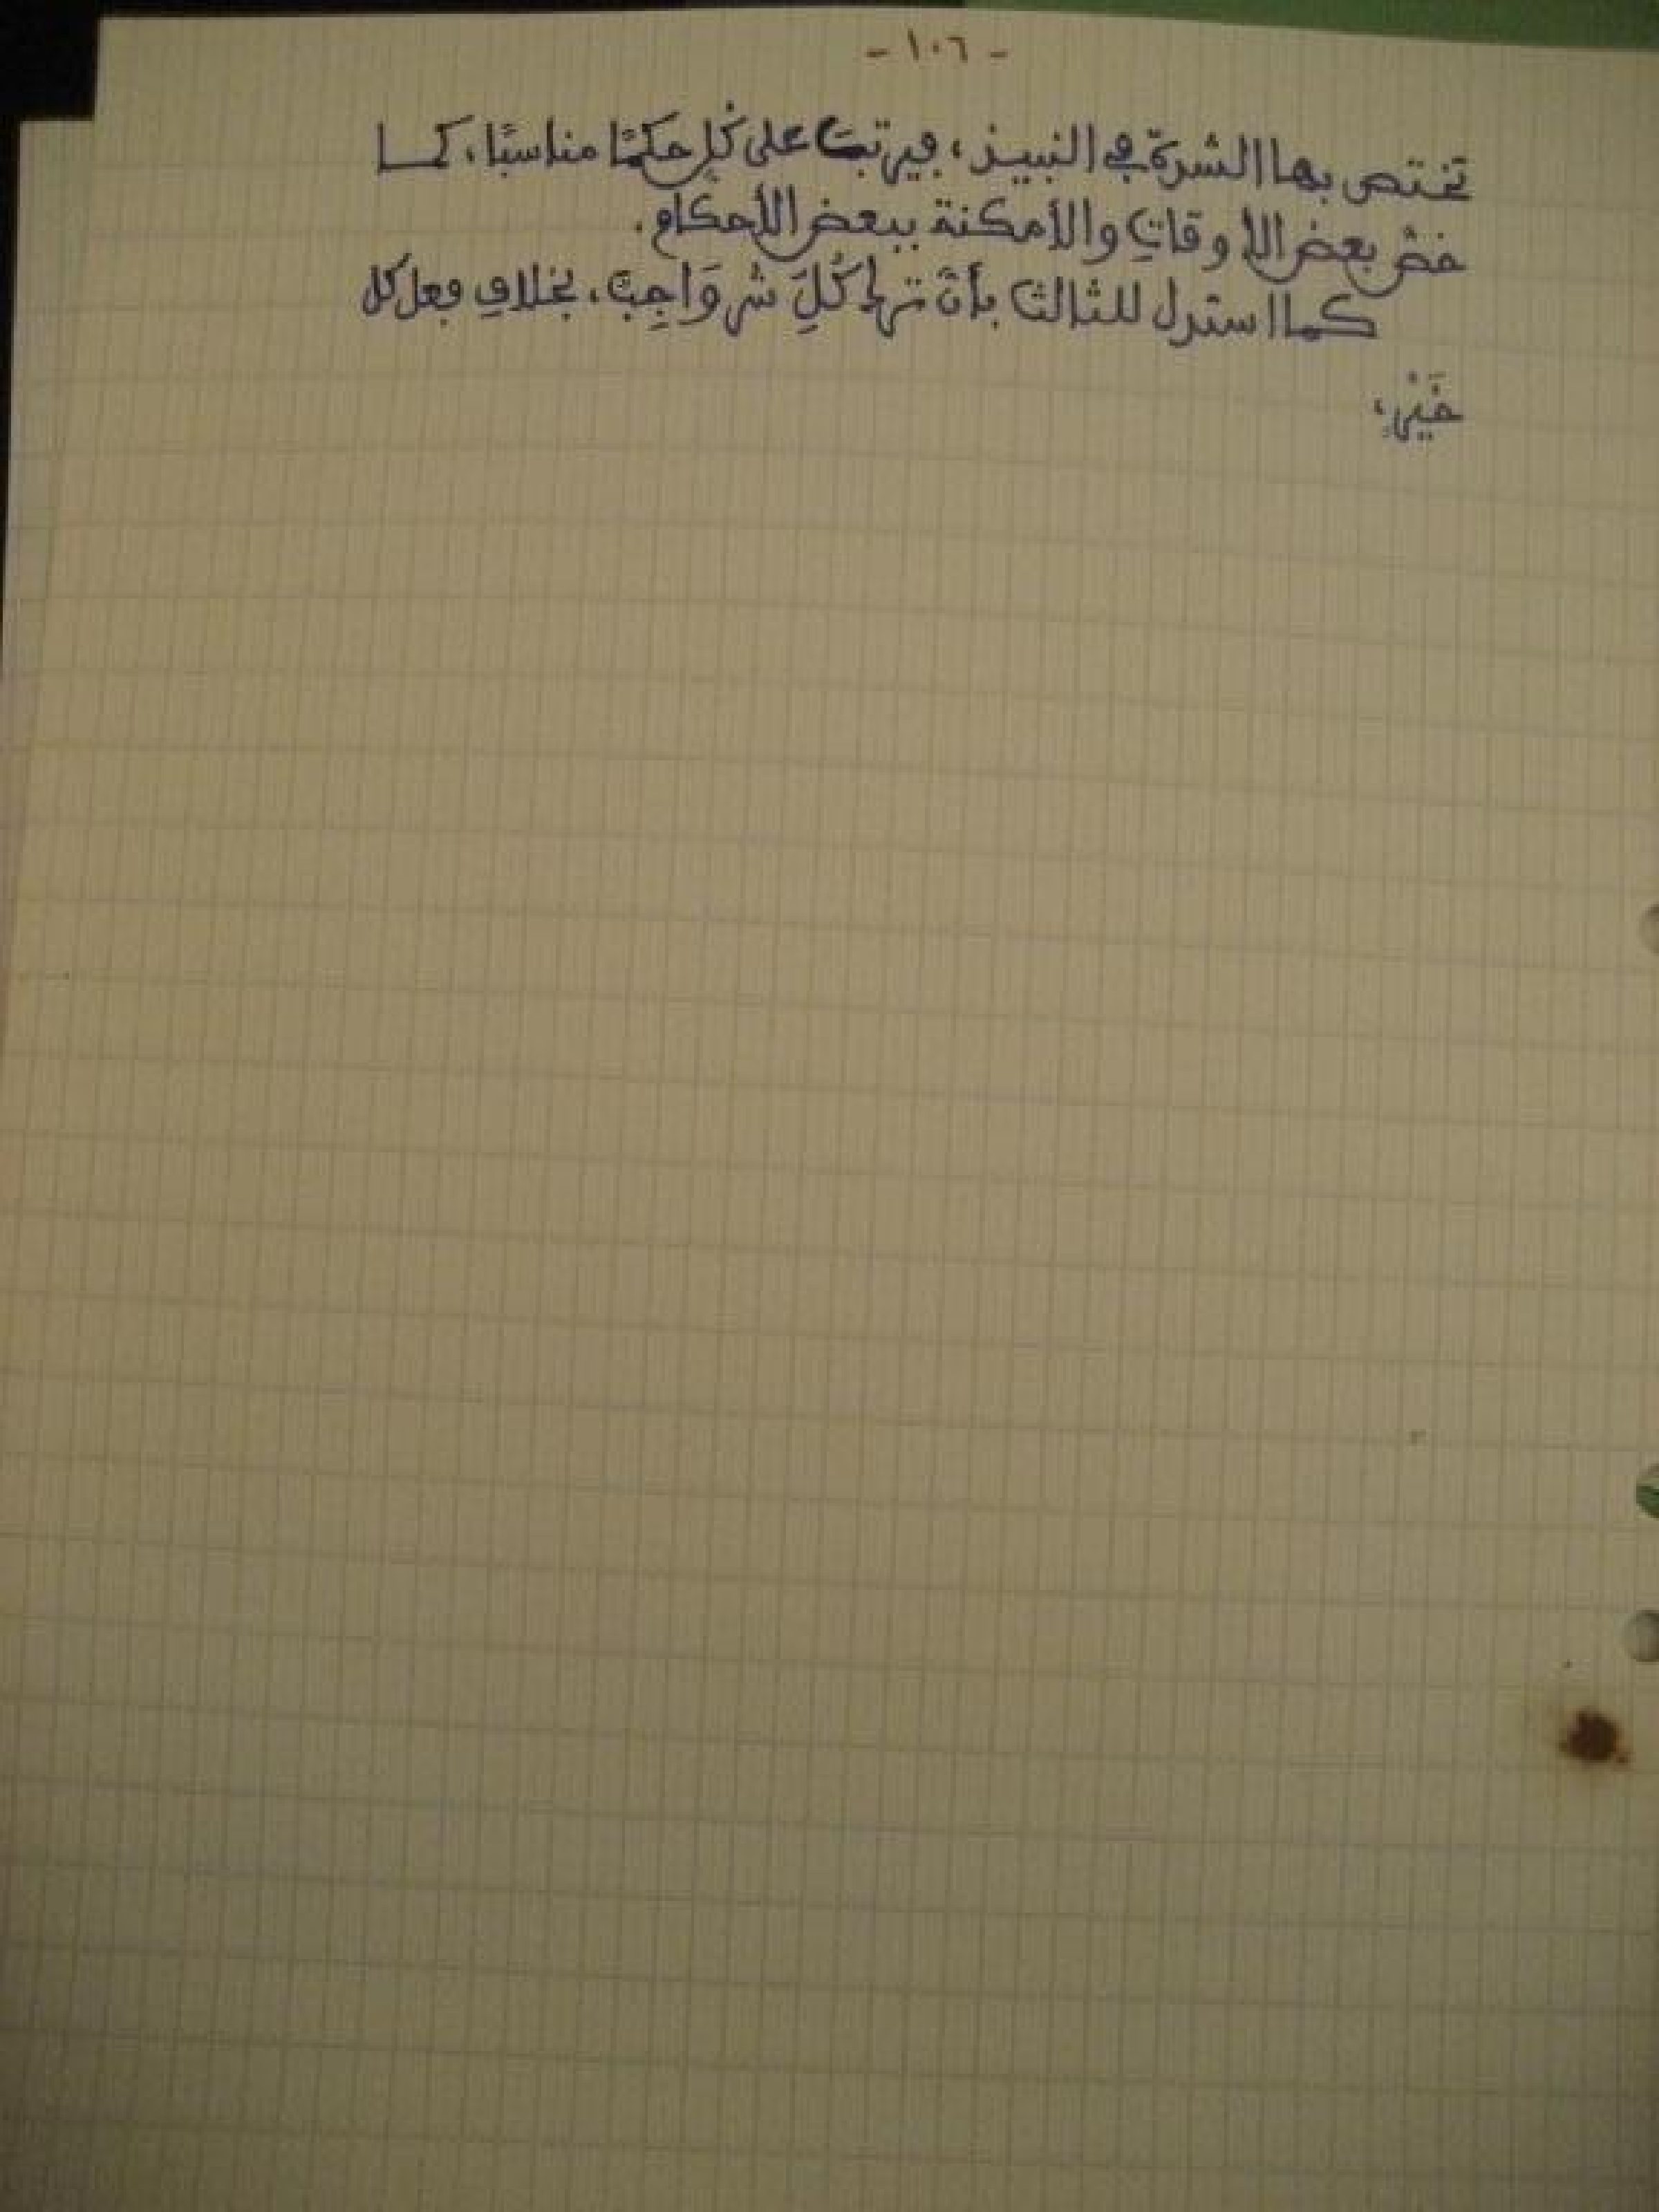 - ١٠٦ -
تختص بها الشدة في النبيذ، فيرتب على كلٍ حكمًا مناسبًا، كما
خص بعض الأوقات والأمكنة ببعض الأحكام.
كما استدل للثالث بأن ترك كُلِّ شر وَاجِبٌ، بخلاف فعل كل
خَيْرٍ،